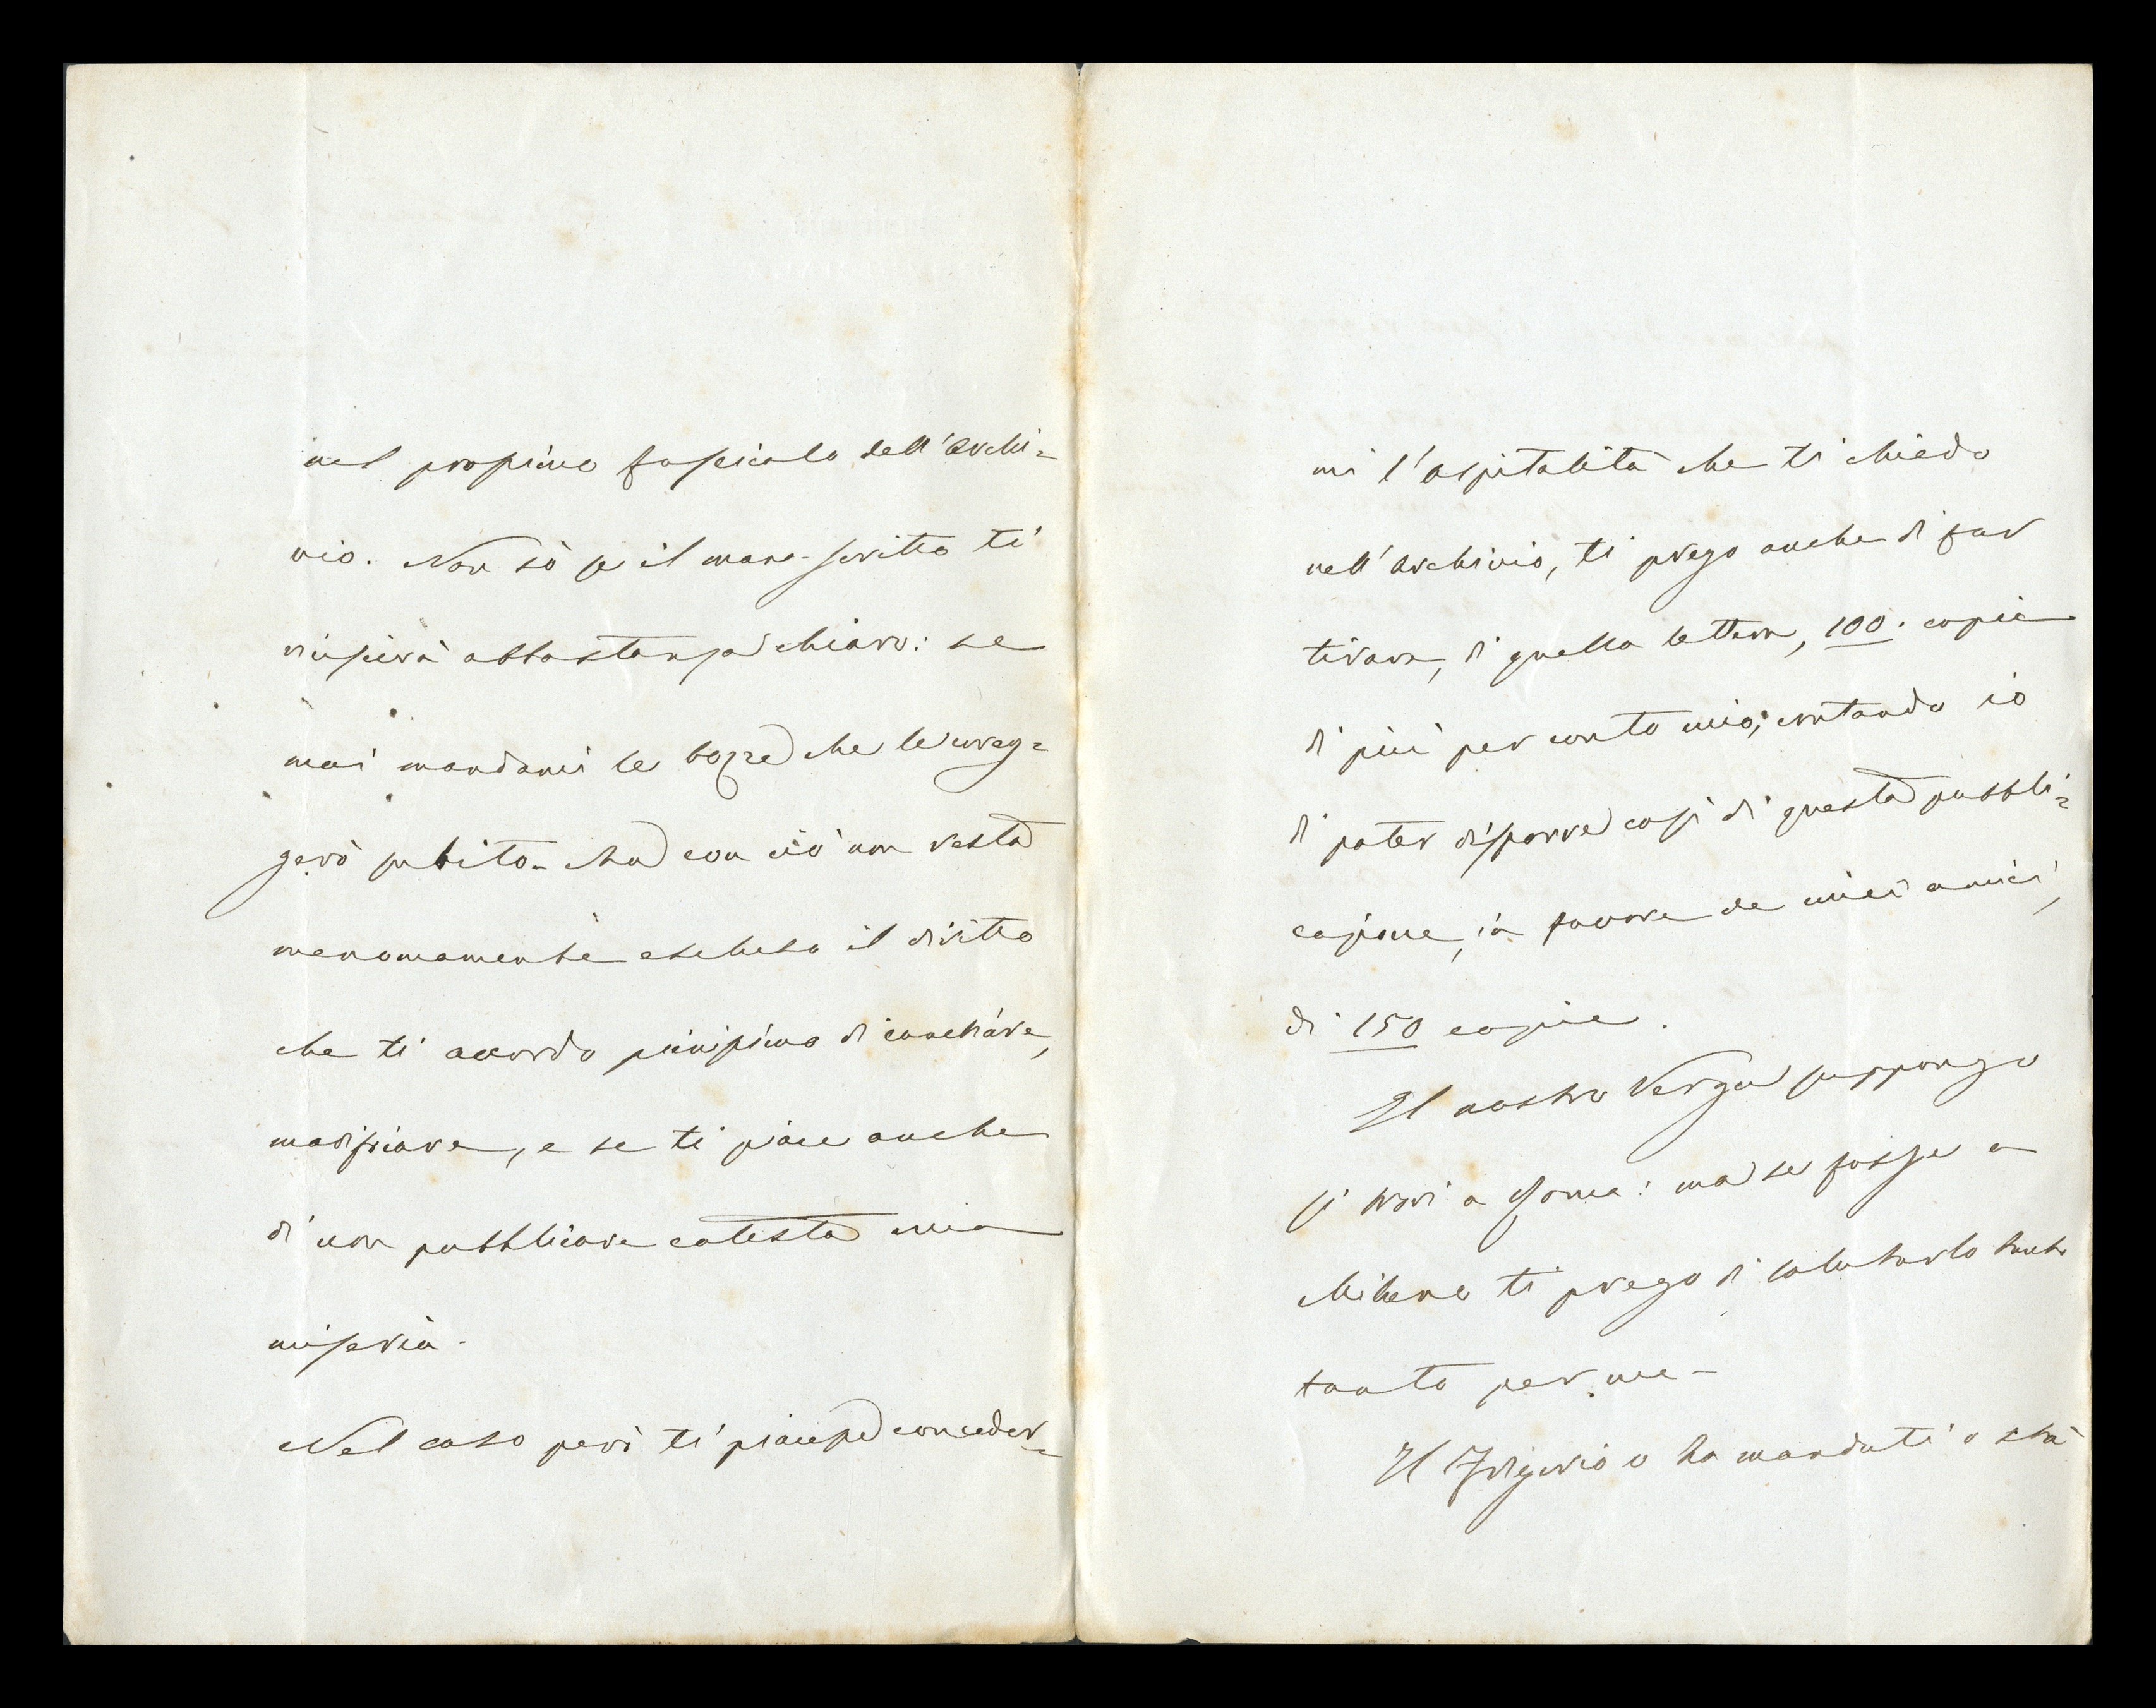 nel prossimo fascicolo dell'Archi=
vio. Non sò se il mano-scritto ti
riuscirà abbastanza chiaro: se
mai mandami le bozze che le coreg=
gerò subito. Ma con ciò non resta
menomamente escluso il diritto
che ti accordo pienissimo di cancellare,
modificare, e se ti piace anche
di non pubblicare cotesta mia
miseria.
Nel caso però ti piacesse conceder=
mi l'ospitalità che ti chiedo
nell'Archivio, ti prego anche di far
tirare, di quella lettera, 100. copie
di più per conto mio, contando io
di poter disporre così di questa pubbli=
cazione, in favore de miei amici,
di 150 copie.
Il nostro Verga suppongo
si trovi a Roma: ma se fosse a
Milano ti prego di salutarlo tanto
tanto per me -
Il Frigerio o ha mandati o stà